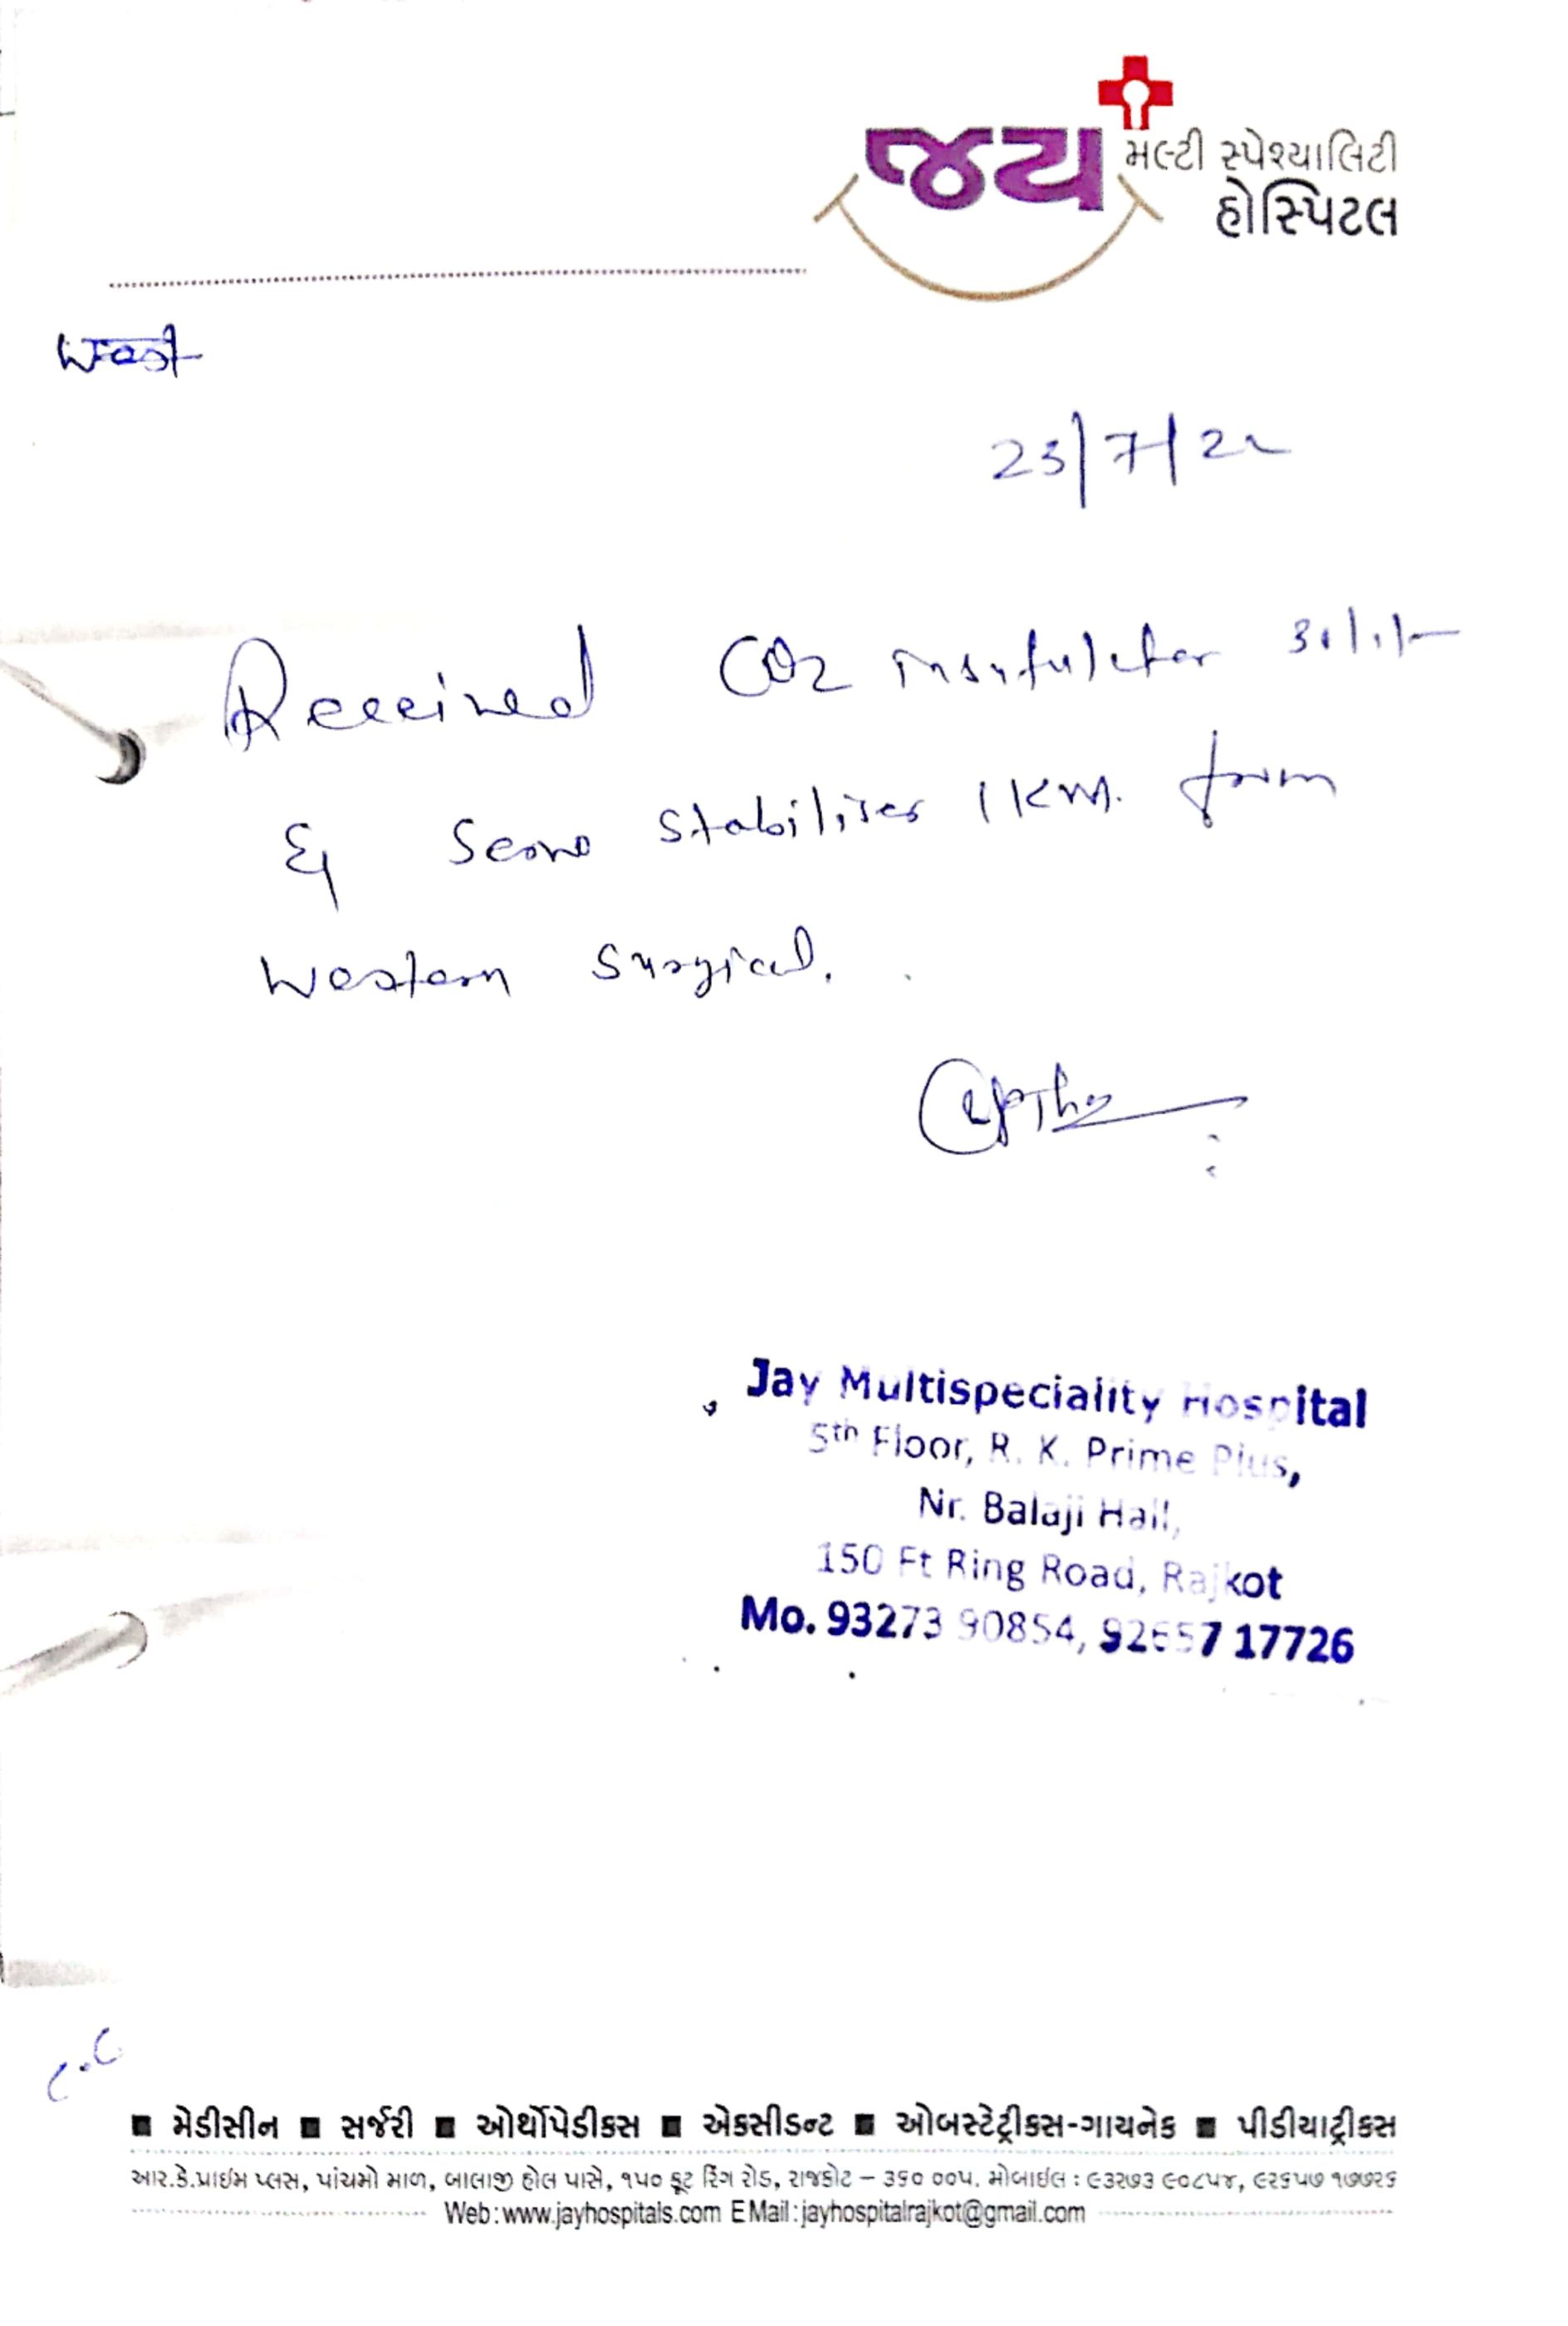 જય મલ્ટી સ્પેશ્યાલિટી
હોસ્પિટલ
23/7/22
Received CO2 insufulator
& Servo Stabiliser 1 KVA. from
Western Surgical.
Jay Multispeciality Hospital
5th Floor, R. K. Prime Plus,
Nr. Balaji Hall,
150 Ft Ring Road, Rajkot
Mo. 93273 90854, 92657 17726
■ મેડીસીન ■ સર્જરી ■ ઓર્થોપેડીક્સ ■ એક્સીડન્ટ ■ ઓબસ્ટેટ્રીક્સ-ગાયનેક ■ પીડીયાટ્રીક્સ
આર.કે.પ્રાઇમ પ્લસ, પાંચમો માળ, બાલાજી હોલ પાસે, ૧૫૦ ફૂટ રિંગ રોડ, રાજકોટ – ૩૬૦ ૦૦૫. મોબાઇલ : ૯૩૨૭૩ ૯૦૮૫૪, ૯૨૬૫૭ ૧૭૭૨૬
Web : www.jayhospitals.com E Mail : jayhospitalrajkot@gmail.com